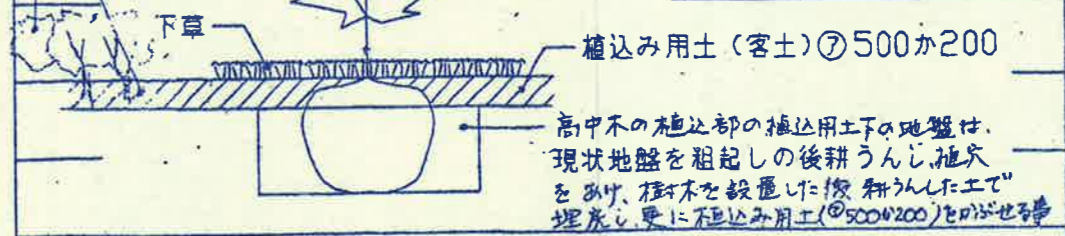 下草
植込み用土(客土)㋐500か200
高中木の植込部の植込用土下の地盤は、
現状地盤を粗起しの後耕うんし、植穴
をあけ、樹木を設置した後 耕うんした土で
埋戻し、更に植込み用土(㋐500か200)をかぶせる事